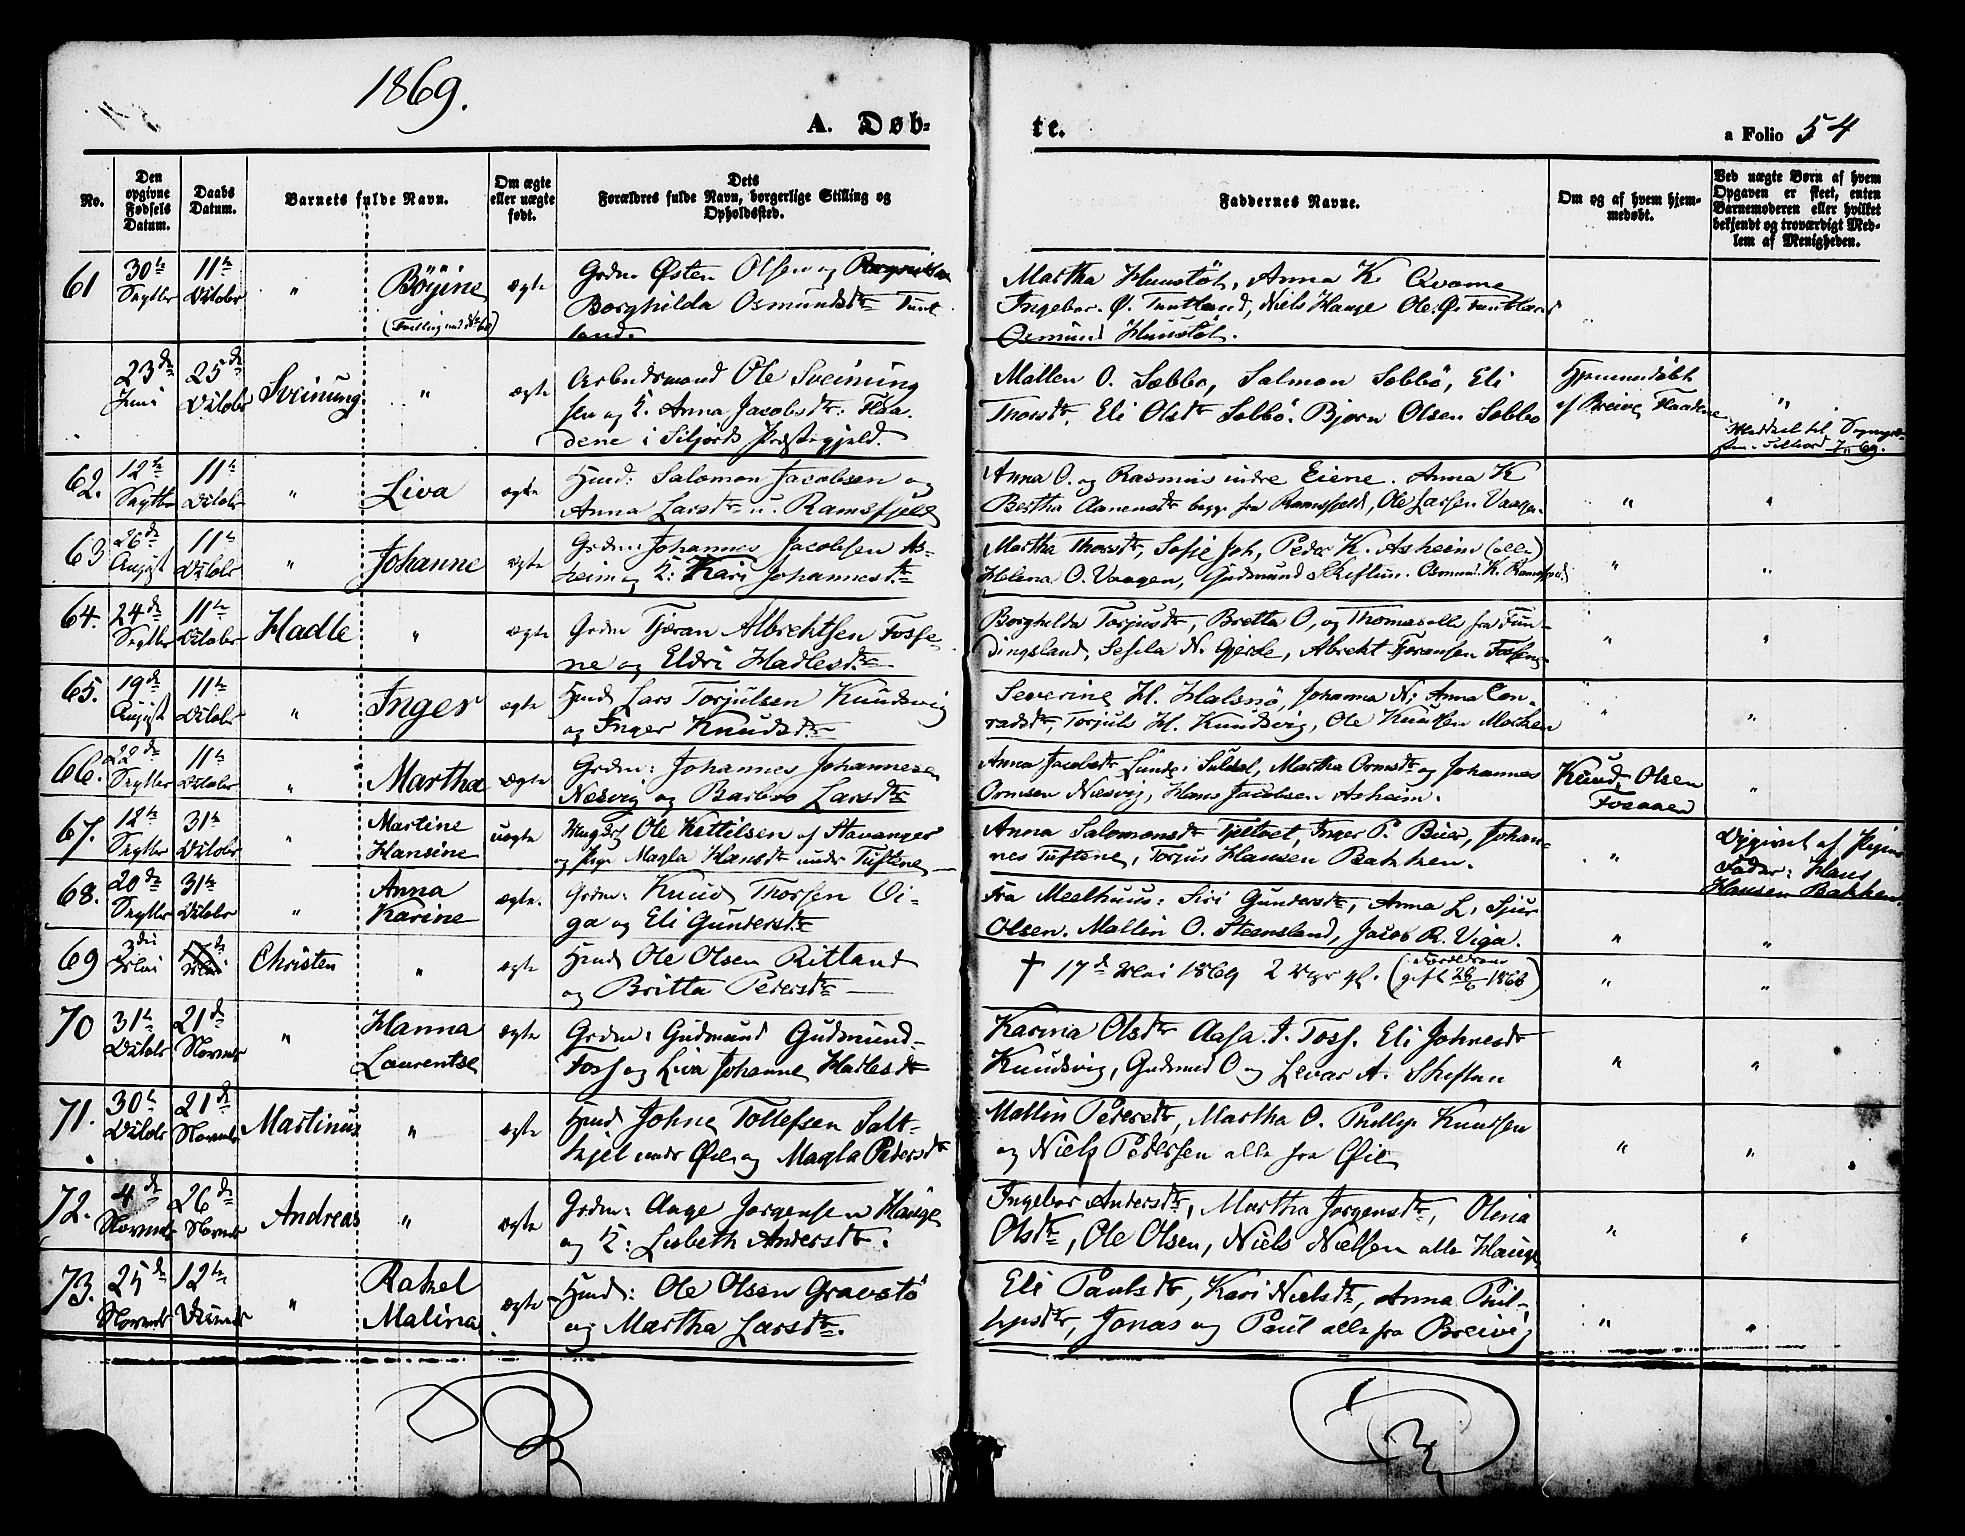 1869.
A. Døb-
te.
a Folio 54
No.
Den opgivne Fødsels Datum.
Daabs Datum.
Barnets fulde Navn.
Om ægte eller uægte født.
Dets Forældres fulde Navn, borgerlige Stilling og Opholdssted.
Faddernes Navne.
Om og af hvem hjemmedøbt.
Ved uægte Børn af hvem Opgaven er skeet, enten Barnemoderen eller hvilket bekjendt og troværdigt Medlem af Menigheden.
61 30te Septbr 11te Octobr " Böyine ægte Grdm Østen Olsen og
(Tvilling med No 60) Borghilda Osmundsdtr Tunt
land.
Martha Hunstöl, Anna K. Qvame
Ingebor. Ø. Tuntland, Niels Hauge Ole. Ø. Tuntland
Osmund Hunstöl.
23de Juni 25de Octobr Sveinung " ægte Arbeidsmand Ole Sveinung
sen og K. Anna Jacobsdtr: Flaa
dene i Siljords Præstegjeld.
Malten O. Sæbbö, Salmon Sebbö, Eli
Thorsdtr, Eli Olsdtr Sebbö. Bjørn Olsen Sebbö
Hjemmedöbt
af Breive Flaadene
"
Meddeel til Sogneprsten Silliord 7/11 69.
62. 12te Septbr 11te Octobr " Liva ægte Huusd: Salomon Jacobsen og
Anna Larsdtr u. Ramsfjeld
Anna O. og Rasmus indre Eiene. Anna K
Bertha Aanensdtr begge fra Ramsfjeld, Ole Larsen Vaage.
" "
63 26de August 11te Octobr " Johanne ægte Grdm: Johannes Jacobsen As-
heim og K: Kari Johannesdtr
Martha Thorsdtr, Sofie Joh, Peder K. Asheim (alle)
Helena O. Vaagen, Gudmund Skiftun. Osmund K. Ramsfjeld
" "
64. 24de Septbr 11te Octobr Hadle " ægte Grdm Tjæran Albrechtsen Fosse
ne og Eldri Hadlesdtr
Borghilda Torjusdtr, Britta O, og Thomas alle fra Tun-
dingsland, Sesila N. Gjerde, Albrecht Tjøransen Fossene
" "
65. 19de August 11te Octobr " Inger ægte Huusd Lars Torjulsen Knudsvig
og Inger Knudsdtr
Severine H. Halsnö, Johanna N; Anna Con-
radsdtr, Torjuls H. Knudsvig, Ole Knudsen Mokken
" "
66. 22de Septbr 11te Octobr " Martha ægte Grdm: Johannes Johannesen
Nesvig og Barbro Larsdtr
Anna Jacobsdtr Lunde i Suldal, Martha Ormsdtr og Johannes
Ormsen Nesvig, Hans Jacobsen Asheim.
Knud Olsen
Fosaaen
"
67. 12te Septbr 31te Octobr " Martine Hansine uægte Ungkrl Ole Kettilsen af Stavanger
og Pige Magla Hansdtr under Tuftene
Anna Salomonsdtr Tjeltvet, Inger P. Buer, Johan-
nes Tuftene, Torjus Hansen Bakken.
"
Opgivet af Pigens
Fader: Hans
Hansen Bakken.
68. 20de Septbr 31te Octobr " Anna Karine ægte. Grdm: Knud Thorsen Vi-
ga og Eli Gundersdtr
Fra Meelhuus: Siri Gundersdtr, Anna L, Sjur
Olsen. Mallin O. Steensland, Jacob R. Viga.
" "
69 3die Mai 17de Mai Christen " ægte Huusd Ole Olsen Ritland
og Britta Pedersdtr
† 17de Mai 1869 2 Uger gl. (Forældrene
gift 28/6 1868)
" "
70 31te Octobr 21de Novembr " Hanna Laurentse ægte Grdm: Gudmund Gudmund-
Foss og Liva Johanne Hadlesdtr
Karina Olsdtr Aasa. I. Foss. Eli Johnesdtr
Knudsvig, Gudmund O og Levar A. Skiftun
" "
71. 30te Octobr 21de Novembr Martinus " ægte Huusd Johne Tollefsen Salt-
skjel under Øie og Magla Pedersdtr
Mallin Pedersdtr, Martha O. Phillip Knudsen
og Niels Pedersen alle fra Øie
" "
72. 4de Novembr 26de Novembr Andreas " ægte Grdm: Aage Jørgensen Hauge
og K: Lisbeth Andersdtr.
Ingebor Andersdtr, Martha Jørgensdtr, Olina
Olsdtr, Ole Olsen, Niels Nielsen alle Hauge
" "
73. 25de Novembr 12te Decembr " Rakel Malina ægte Huusd: Ole Olsen Gravstö
og Martha Larsdtr.
Eli Paulsdtr, Kari Nielsdtr, Anna Phil-
lipsdtr, Jonas og Paul alle fra Breivig
" "